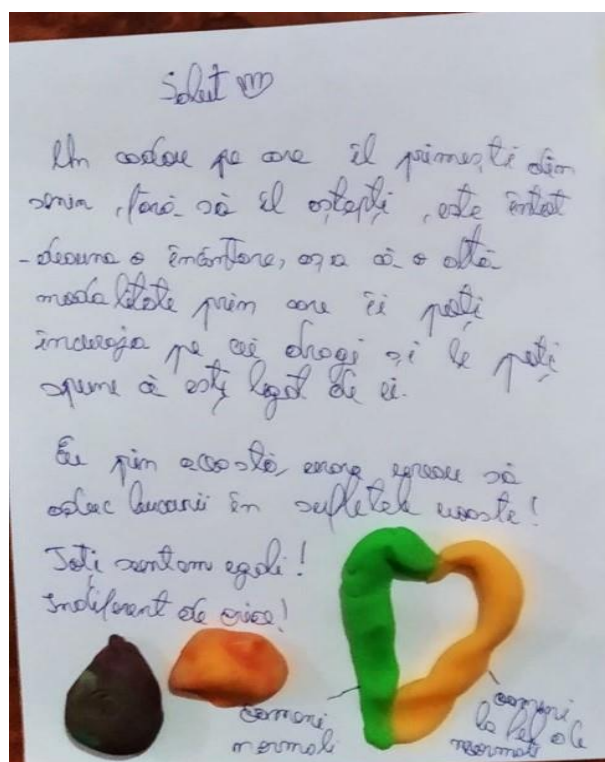 Salut
Un cadou pe care îl primești din
senin, fără să îl aștepți, este întot
-deauna o încântare, așa că o altă
modalitate prin care îi poți
încuraja pe cei dragi și le poți
spune că ești legat de ei.
Eu prin aceasta, vreau să
aduc bucurii în sufletele voaste!
Toți suntem egali!
Indiferent de orice!
oameni
normali
oameni
la fel de
normali